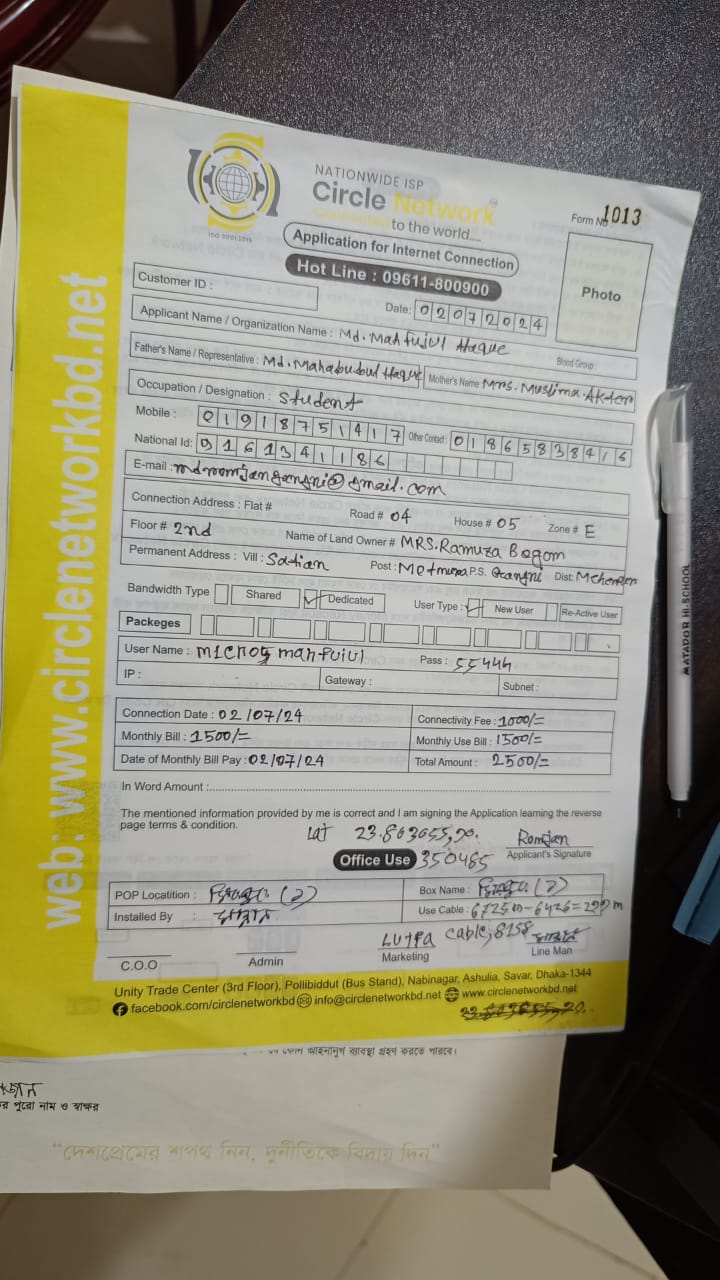 NATIONWIDE ISP
Circle Network
Connected to the world....
ISO 9001:2015
Form No 1013
Application for Internet Connection
Hot Line : 09611-800900
Photo
Customer ID :
Date: 02072024
Applicant Name / Organization Name : Md. Mahfujul Haque
Blood Group :
Father's Name / Representative : Md. Mahabubul Haque Mother's Name Mrs. Muslima Akter
Occupation / Designation : Student
Mobile : 01918751417 Other Contact : 01865838416
National Id: 9161341186
E-mail :
Connection Address : Flat # Road # 04 House # 05 Zone # E
Floor # 2nd Name of Land Owner # MRS. Ramuza Begom
Permanent Address : Vill : Post : P.S. Dist:
Bandwidth Type Shared Dedicated User Type : New User Re-Active User
Packeges
User Name : Pass : 55444
IP : Gateway : Subnet :
Connection Date : 02/07/24 Connectivity Fee : 1000/=
Monthly Bill : 1500/= Monthly Use Bill : 1500/=
Date of Monthly Bill Pay : 02/07/24 Total Amount : 2500/=
In Word Amount :
The mentioned information provided by me is correct and I am signing the Application learning the reverse
page terms & condition.
Romjan
Office Use 350485 Applicant's Signature
POP Locatition : (২) Box Name : (২)
Installed By : Use Cable : 6725m-6426=299m
Cable, 8158
C.O.O Admin Marketing Line Man
Unity Trade Center (3rd Floor), Pollibiddut (Bus Stand), Nabinagar, Ashulia, Savar, Dhaka-1344
facebook.com/circlenetworkbd info@circlenetworkbd.net www.circlenetworkbd.net
web: www.circlenetworkbd.net
আইনানুগ ব্যবস্থা গ্রহণ করতে পারবে।
পুরো নাম ও স্বাক্ষর
“দেশপ্রেমের শপথ নিন, দুর্নীতিকে বিদায় দিন”
MATADOR HI-SCHOOL